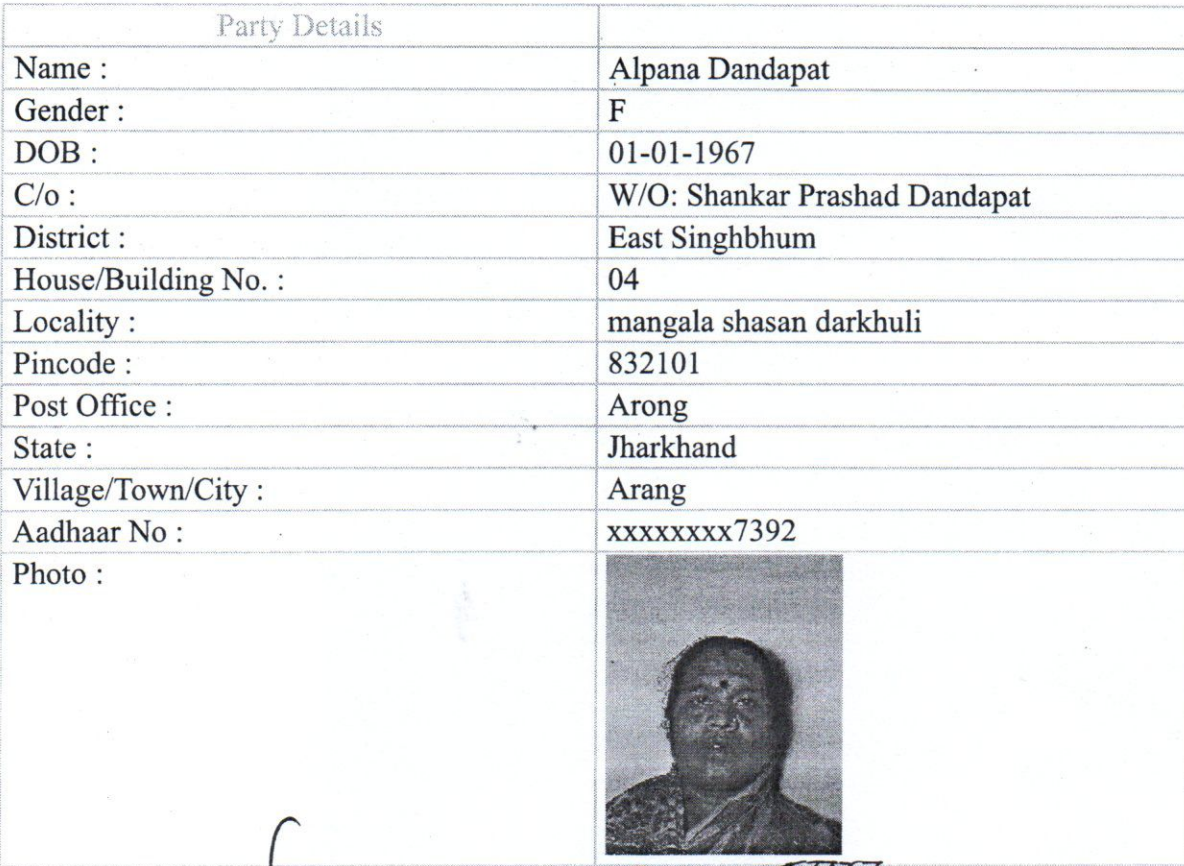 Party Details
Name : Alpana Dandapat
Gender : F
DOB : 01-01-1967
C/o : W/O: Shankar Prashad Dandapat
District : East Singhbhum
House/Building No. : 04
Locality : mangala shasan darkhuli
Pincode : 832101
Post Office : Arong
State : Jharkhand
Village/Town/City : Arang
Aadhaar No : xxxxxxxx7392
Photo :